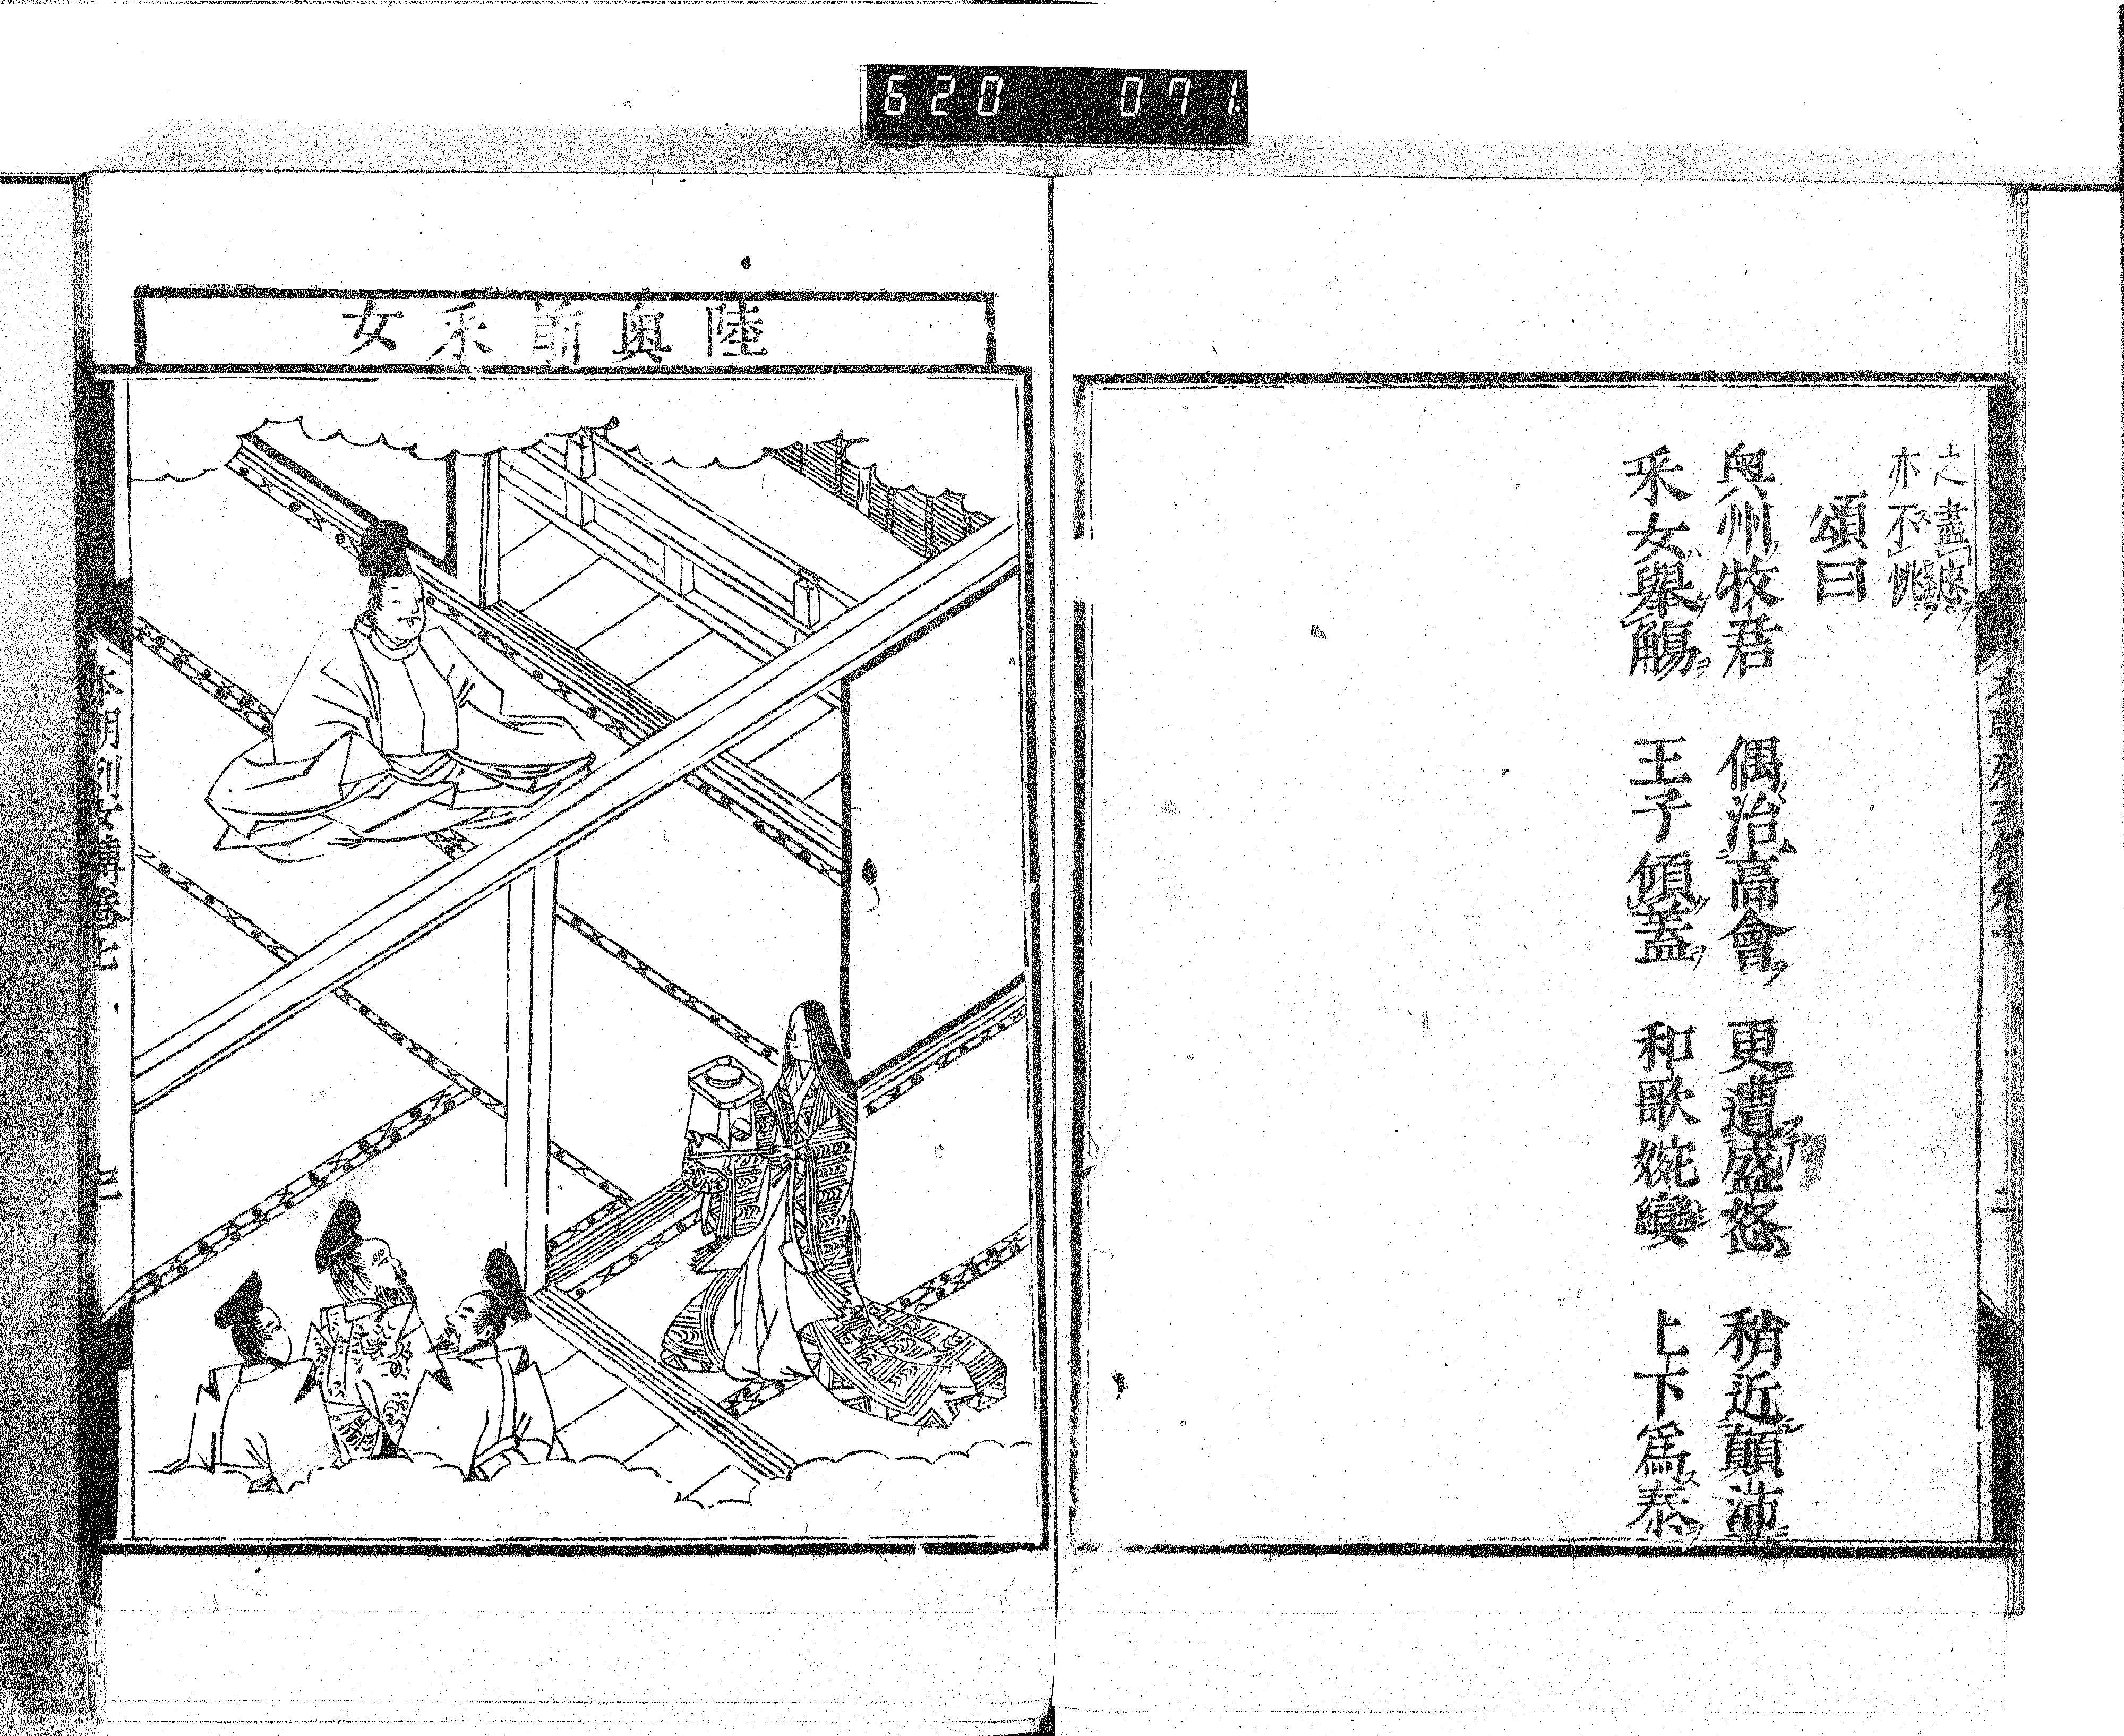 620 071
之盡忠
亦不恌
頌曰
奥州牧君 偶治高會 更遭盛怒 稍近顛沛
釆女擧觴 王子傾蓋 和歌婉孌 上下爲泰
二
陸奥前釆女
本朝列女傳卷七
三